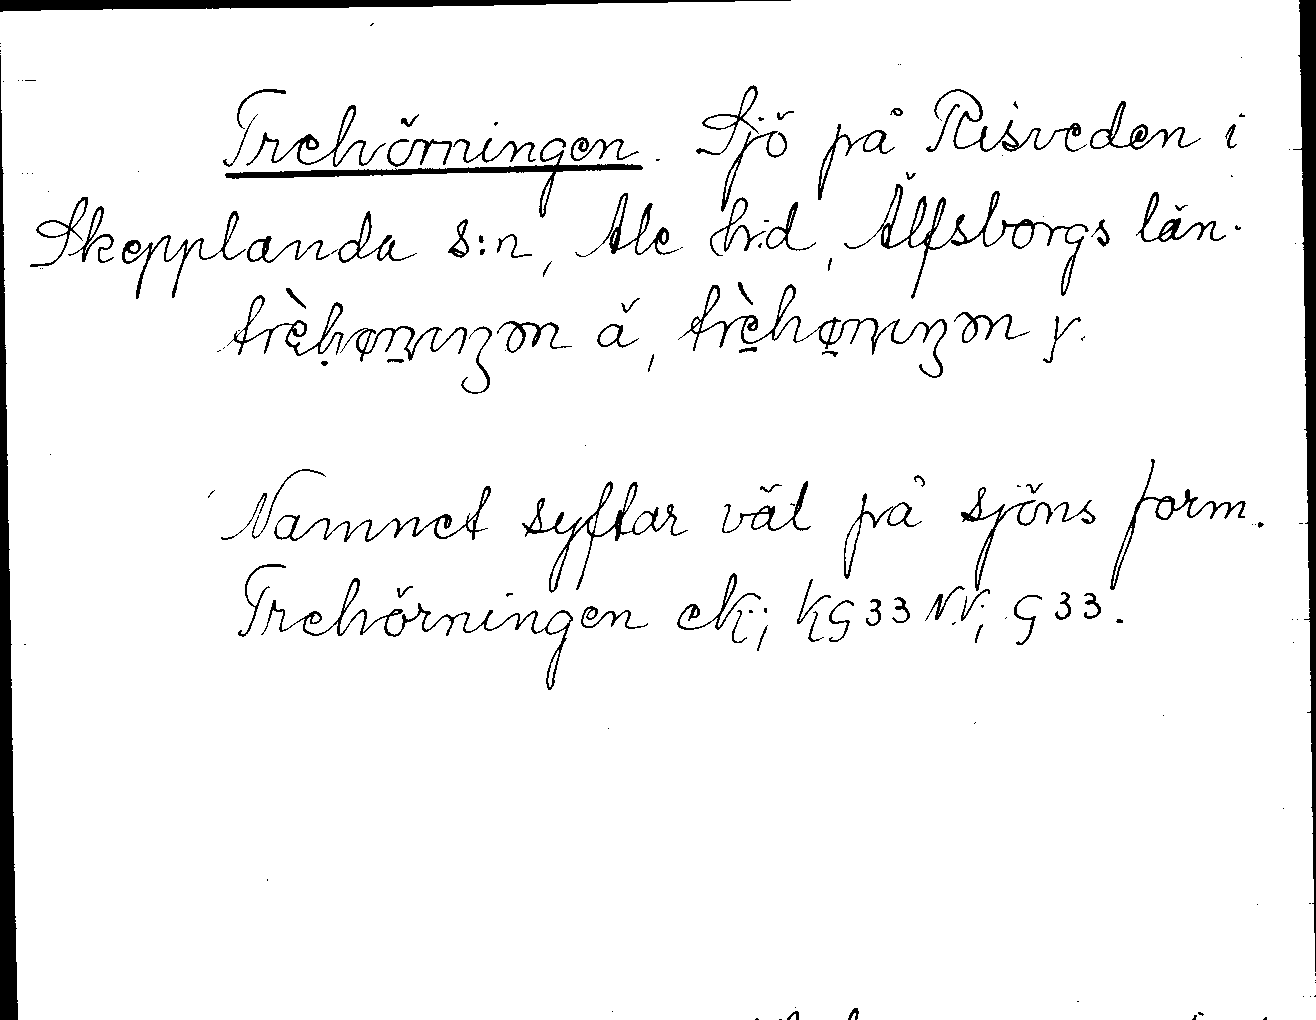 Trehörningen. Sjö på Risveden i
Skepplanda s:n, Ale h:d, Älfsborgs län.
ä, y.
Namnet syftar väl på sjöns form.
Trehörningen eK; KG33 NV; G33.